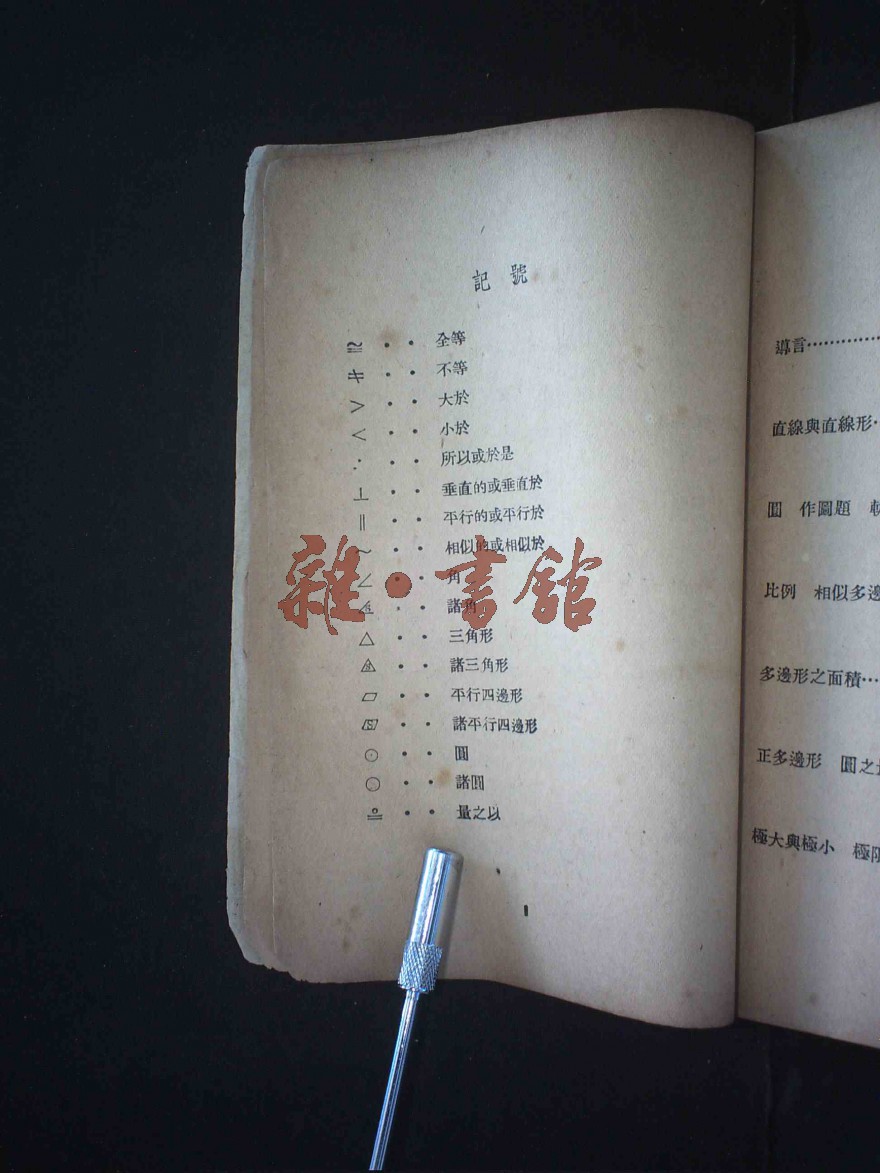 記號
≅ · · 全等
≠ · · 不等
> · · 大於
< · · 小於
∴ · · 所以或於是
⊥ · · 垂直的或垂直於
∥ · · 平行的或平行於
~ · · 相似的或相似於
∠ · · 角
· · 諸角
△ · · 三角形
· · 諸三角形
▱ · · 平行四邊形
· · 諸平行四邊形
⊙ · · 圓
· · 諸圓
≗ · · 量之以
雜·書館
導言
直線與直線形
圓 作圖題
比例 相似多邊
多邊形之面積
正多邊形 圓之
極大與極小 極